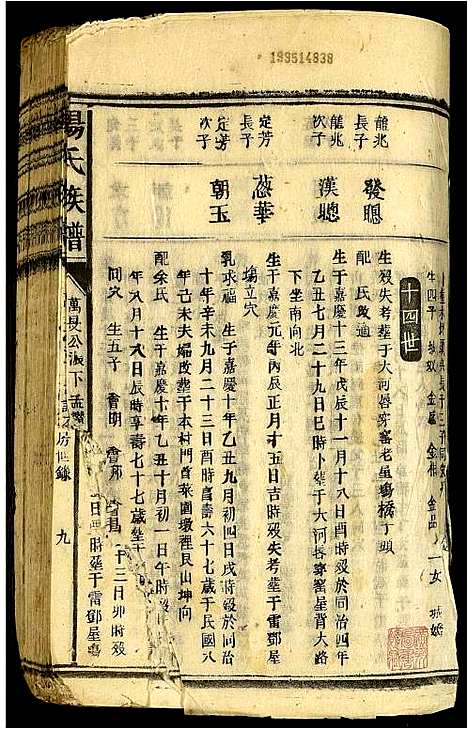 199514838
生四子 金 金相 金品 一女
十四世
龍兆長子 發聰
生殁失考葬于大河唇穿窑老虽塢橋丁頭
配氏改適
龍兆次子 漢聰
生于嘉慶十三年戊辰十一月十八日酉時殁於同治四年
乙丑七月二十九日巳時卜葬于大河唇穿窑星背大路
下坐南向北
定芳長子 蔥華
生于嘉慶元年丙辰正月十五日吉時殁失考葬于雷鄧星
塢立穴
定芳次子 朝玉
乳求福 生于嘉慶十年乙丑九月初四日戌時殁於同治
十年辛未九月二十三日酉時壽六十七歲葬于民國八
年己未夫婦改葬于本村門首菜園墩裡艮山坤向
配余氏 生于嘉慶十年乙丑十月初一日午時殁
年八月十八日辰時享壽七十七歲葬
同穴 生五子 會明 會邦 會昌
十三日卯時殁
日酉時葬于雷鄧星塢
楊氏族譜
萬長公派下 房世錄 九